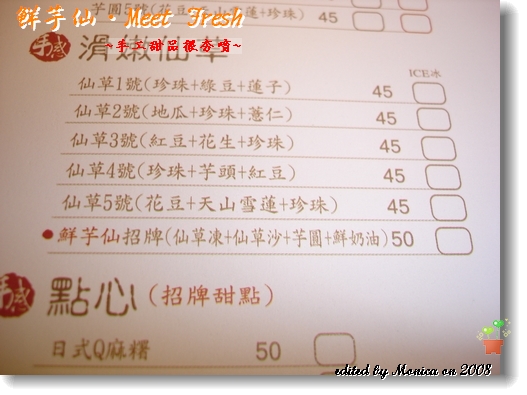 芋圓5號(花豆+天山雪蓮+珍珠) 45
鮮芋仙·Meet Fresh
~手工甜品很夯唷~
手感 滑嫩仙草
ICE冰
仙草1號(珍珠+綠豆+蓮子) 45
仙草2號(地瓜+珍珠+薏仁) 45
仙草3號(紅豆+花生+珍珠) 45
仙草4號(珍珠+芋頭+紅豆) 45
仙草5號(花豆+天山雪蓮+珍珠) 45
鮮芋仙招牌(仙草凍+仙草沙+芋圓+鮮奶油) 50
手感 點心(招牌甜點)
日式Q麻糬 50
edited by Monica on 2008